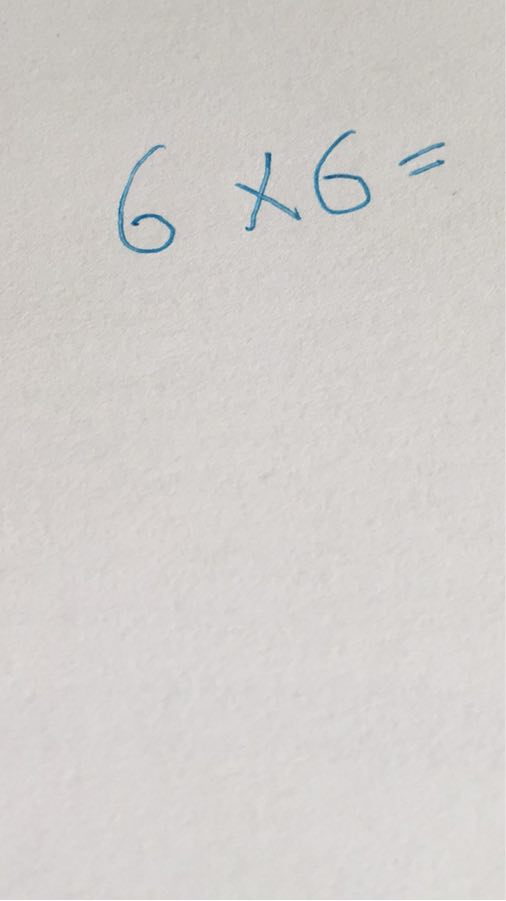 6 × 6 =